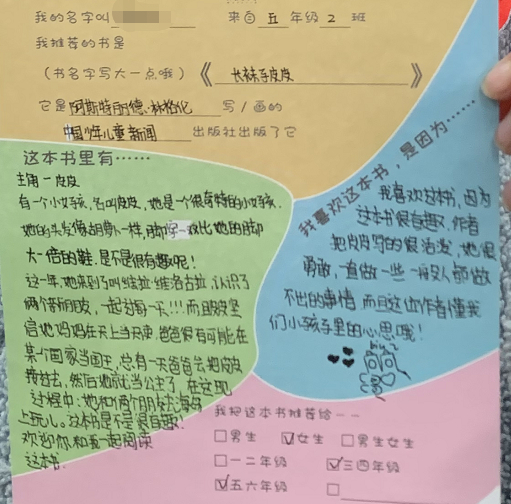 我的名字叫 来自五年级2班
我推荐的书是
(书名字写大一点哦)《长袜子皮皮》
它是阿斯特丽德·林格伦写/画的
中国少年儿童新闻出版社出版了它
这本书里有……
主角—皮皮
有一个小女孩,名叫皮皮,她是一个很奇特的小女孩.
她的头发像胡萝卜一样,脚穿一双比她的脚
大一倍的鞋.是不是很有趣呢!
这一年,她来到了叫维拉·维洛古拉,认识了
两个新朋友,一起过每一天!!!而且皮皮坚
信她妈妈在天上当天使,爸爸很有可能在
某个国家当国王,总有一天爸爸会把皮皮
接过去,然后她就当公主了,在这现
过程中:她和两个朋友去海
上玩儿。这本书是不是很有趣!
欢迎你和我一起阅读
这本书.
我喜欢这本书,是因为……
我喜欢这本书,因为
这本书很有趣,作者
把皮皮写的很活泼,她很
勇敢,直做一些一般人都做
不出的事情.而且这位作者懂我
们小孩子里的心思哦!
我把这本书推荐给——
□男生 ☑女生 □男生女生
□一二年级 ☑三四年级
☑五六年级 □